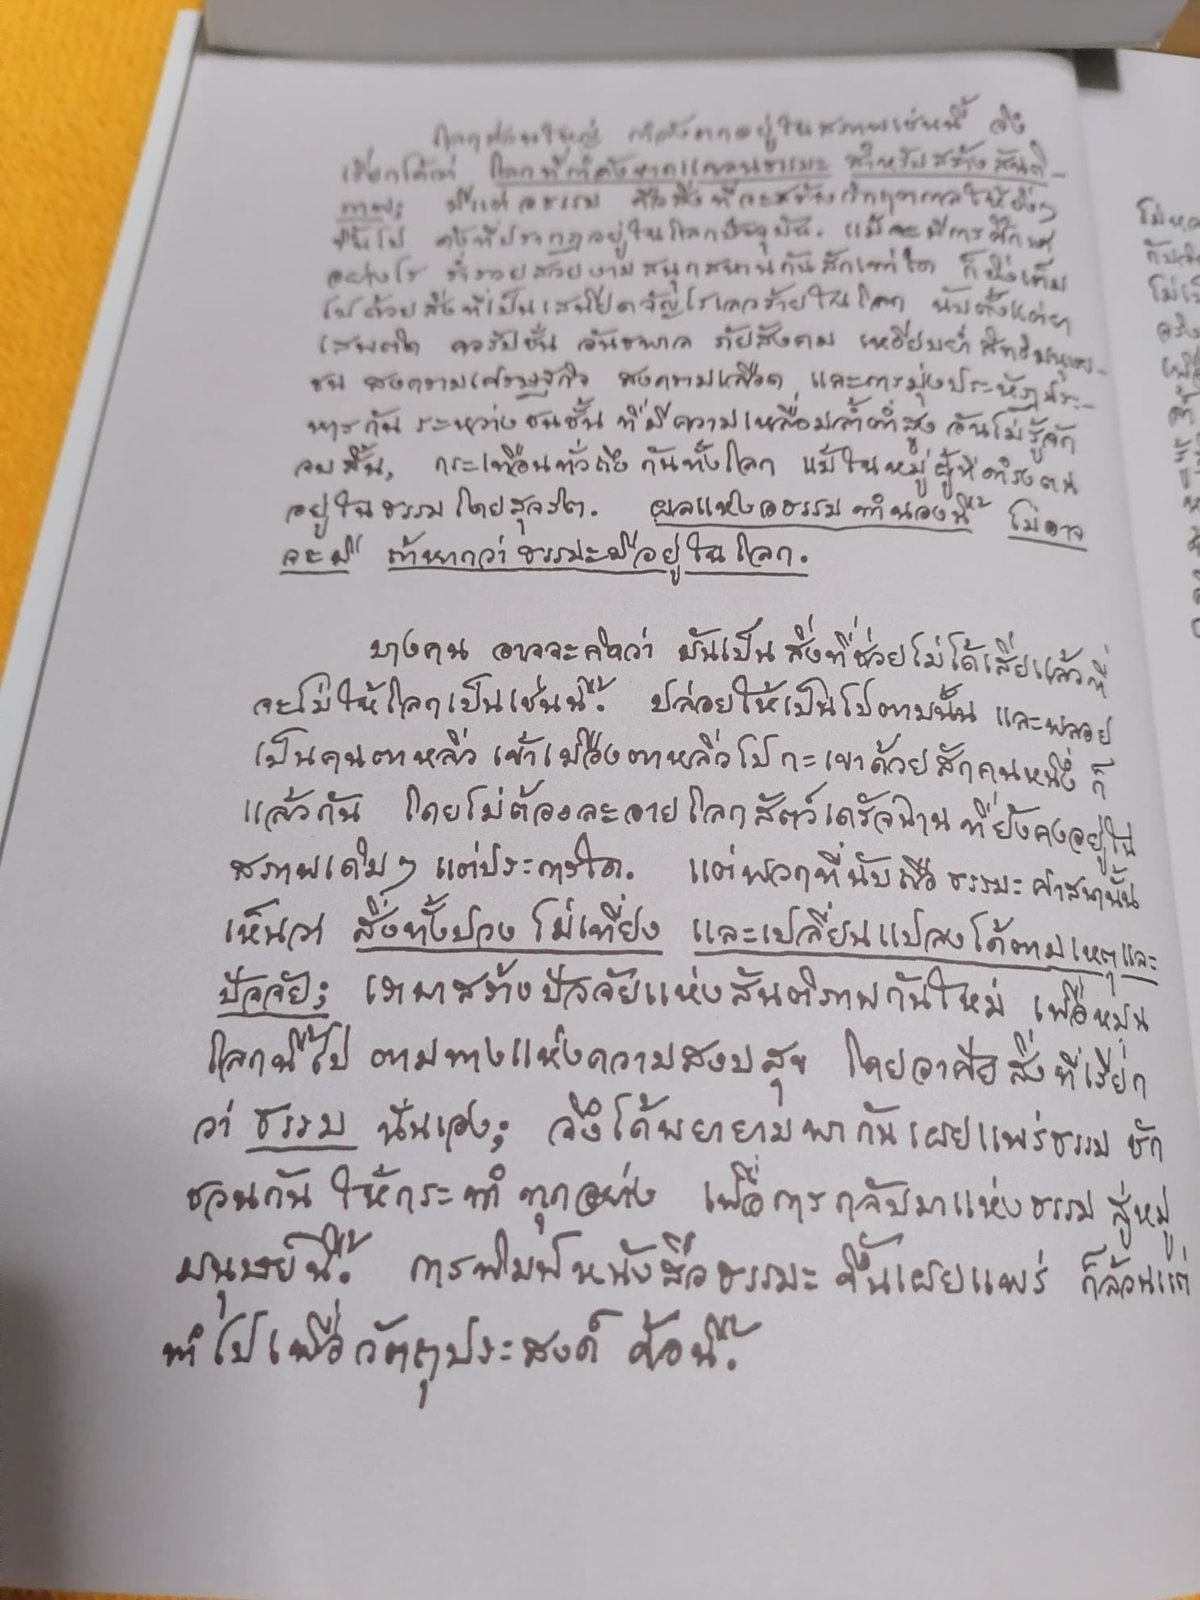 โลกส่วนใหญ่ กำลังตกอยู่ในสภาพเช่นนี้ จึง
เรียกได้ว่า โลกที่กำลังขาดแคลนธรรมะ สำหรับสร้างสันติ-
ภาพ; มีแต่อธรรม คือสิ่งที่จะสร้างวิกฤตกาลให้ยิ่งๆ
ขึ้นไป ดังที่ปรากฏอยู่ในโลกปัจจุบัน. แม้จะมีการศึกษา
อย่างไร ร่ำรวยสวยงามสนุกสนานกันสักเท่าใด ก็ยิ่งเต็ม
ไปด้วยสิ่งที่เป็นเสนียดจัญไรเลวร้ายในโลก นับตั้งแต่ยา
เสพติด คอรัปชั่น อันธพาล ภัยสังคม เหยียบย่ำสิทธิมนุษย-
ชน สงครามเศรษฐกิจ สงครามเลือด และการมุ่งประหัตประ-
หารกัน ระหว่างชนชั้น ที่มีความเหลื่อมล้ำต่ำสูง อันไม่รู้จัก
จบสิ้น, กระเทือนทั่วถึงกันทั้งโลก แม้ในหมู่ผู้ที่ดำรงตน
อยู่ในธรรมโดยสุจริต. ผลแห่งอธรรมทำนองนี้ ไม่อาจ
จะมี ถ้าหากว่าธรรมะมีอยู่ในโลก.
บางคน อาจจะคิดว่า มันเป็นสิ่งที่ช่วยไม่ได้เสียแล้วที่
จะไม่ให้โลกเป็นเช่นนี้. ปล่อยให้เป็นไปตามนั้น และพลอย
เป็นคนตาหลิ่ว เข้าเมืองตาหลิ่วไปกะเขาด้วยสักคนหนึ่ง ก็
แล้วกัน โดยไม่ต้องละอายโลกสัตว์เดรัจฉาน ที่ยังคงอยู่ใน
สภาพเดิมๆ แต่ประการใด. แต่พวกที่นับถือ ธรรมะศาสนานั้น
เห็นว่า สิ่งทั้งปวง ไม่เที่ยง และเปลี่ยนแปลงได้ตามเหตุและ
ปัจจัย; เรามาสร้างปัจจัยแห่งสันติภาพกันใหม่ เพื่อหมุน
โลกนี้ไป ตามทางแห่งความสงบสุข โดยอาศัยสิ่งที่เรียก
ว่า ธรรม นั่นเอง; จึงได้พยายามพากันเผยแพร่ธรรม ชัก
ชวนกัน ให้กระทำทุกอย่าง เพื่อการกลับมาแห่งธรรม สู่หมู่
มนุษย์นี้. การพิมพ์หนังสือธรรมะ ขึ้นเผยแพร่ ก็ล้วนแต่
ทำไปเพื่อวัตถุประสงค์ ข้อนี้.